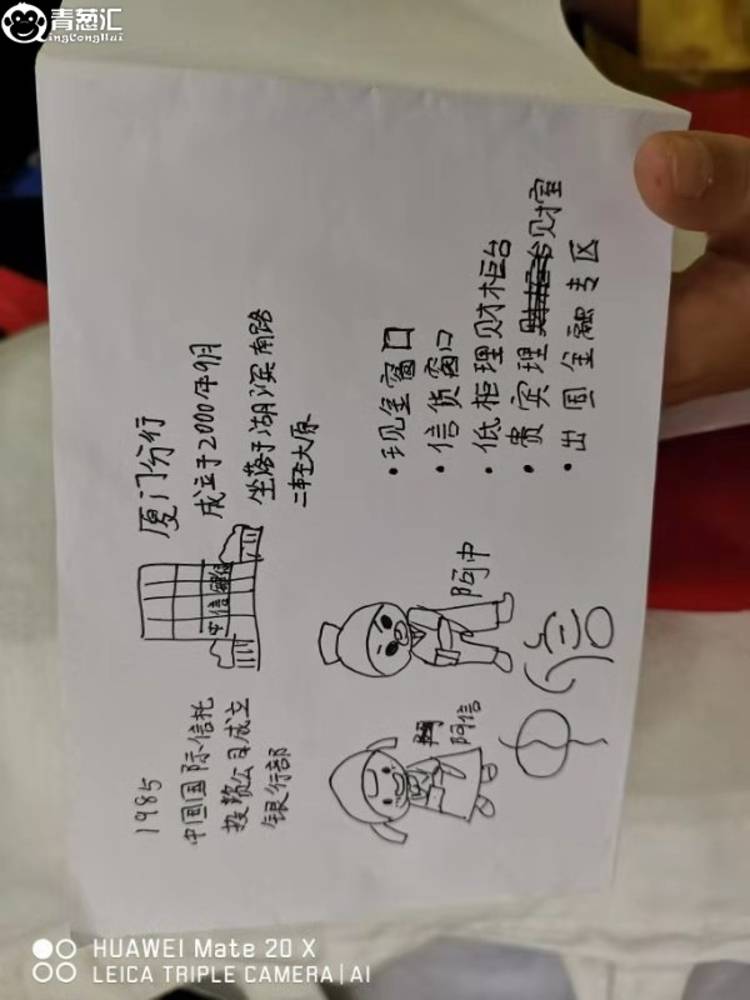 青葱汇
QingCongHui
1985
中国国际信托
投资公司成立
银行部
中信银行
厦门分行
成立于2000年9月
坐落于湖滨南路
二轻大厦
阿信
阿中
中信
• 现金窗口
• 信贷窗口
• 低柜理财柜台
• 贵宾理财室
• 出国金融专区
HUAWEI Mate 20 X
LEICA TRIPLE CAMERA | AI